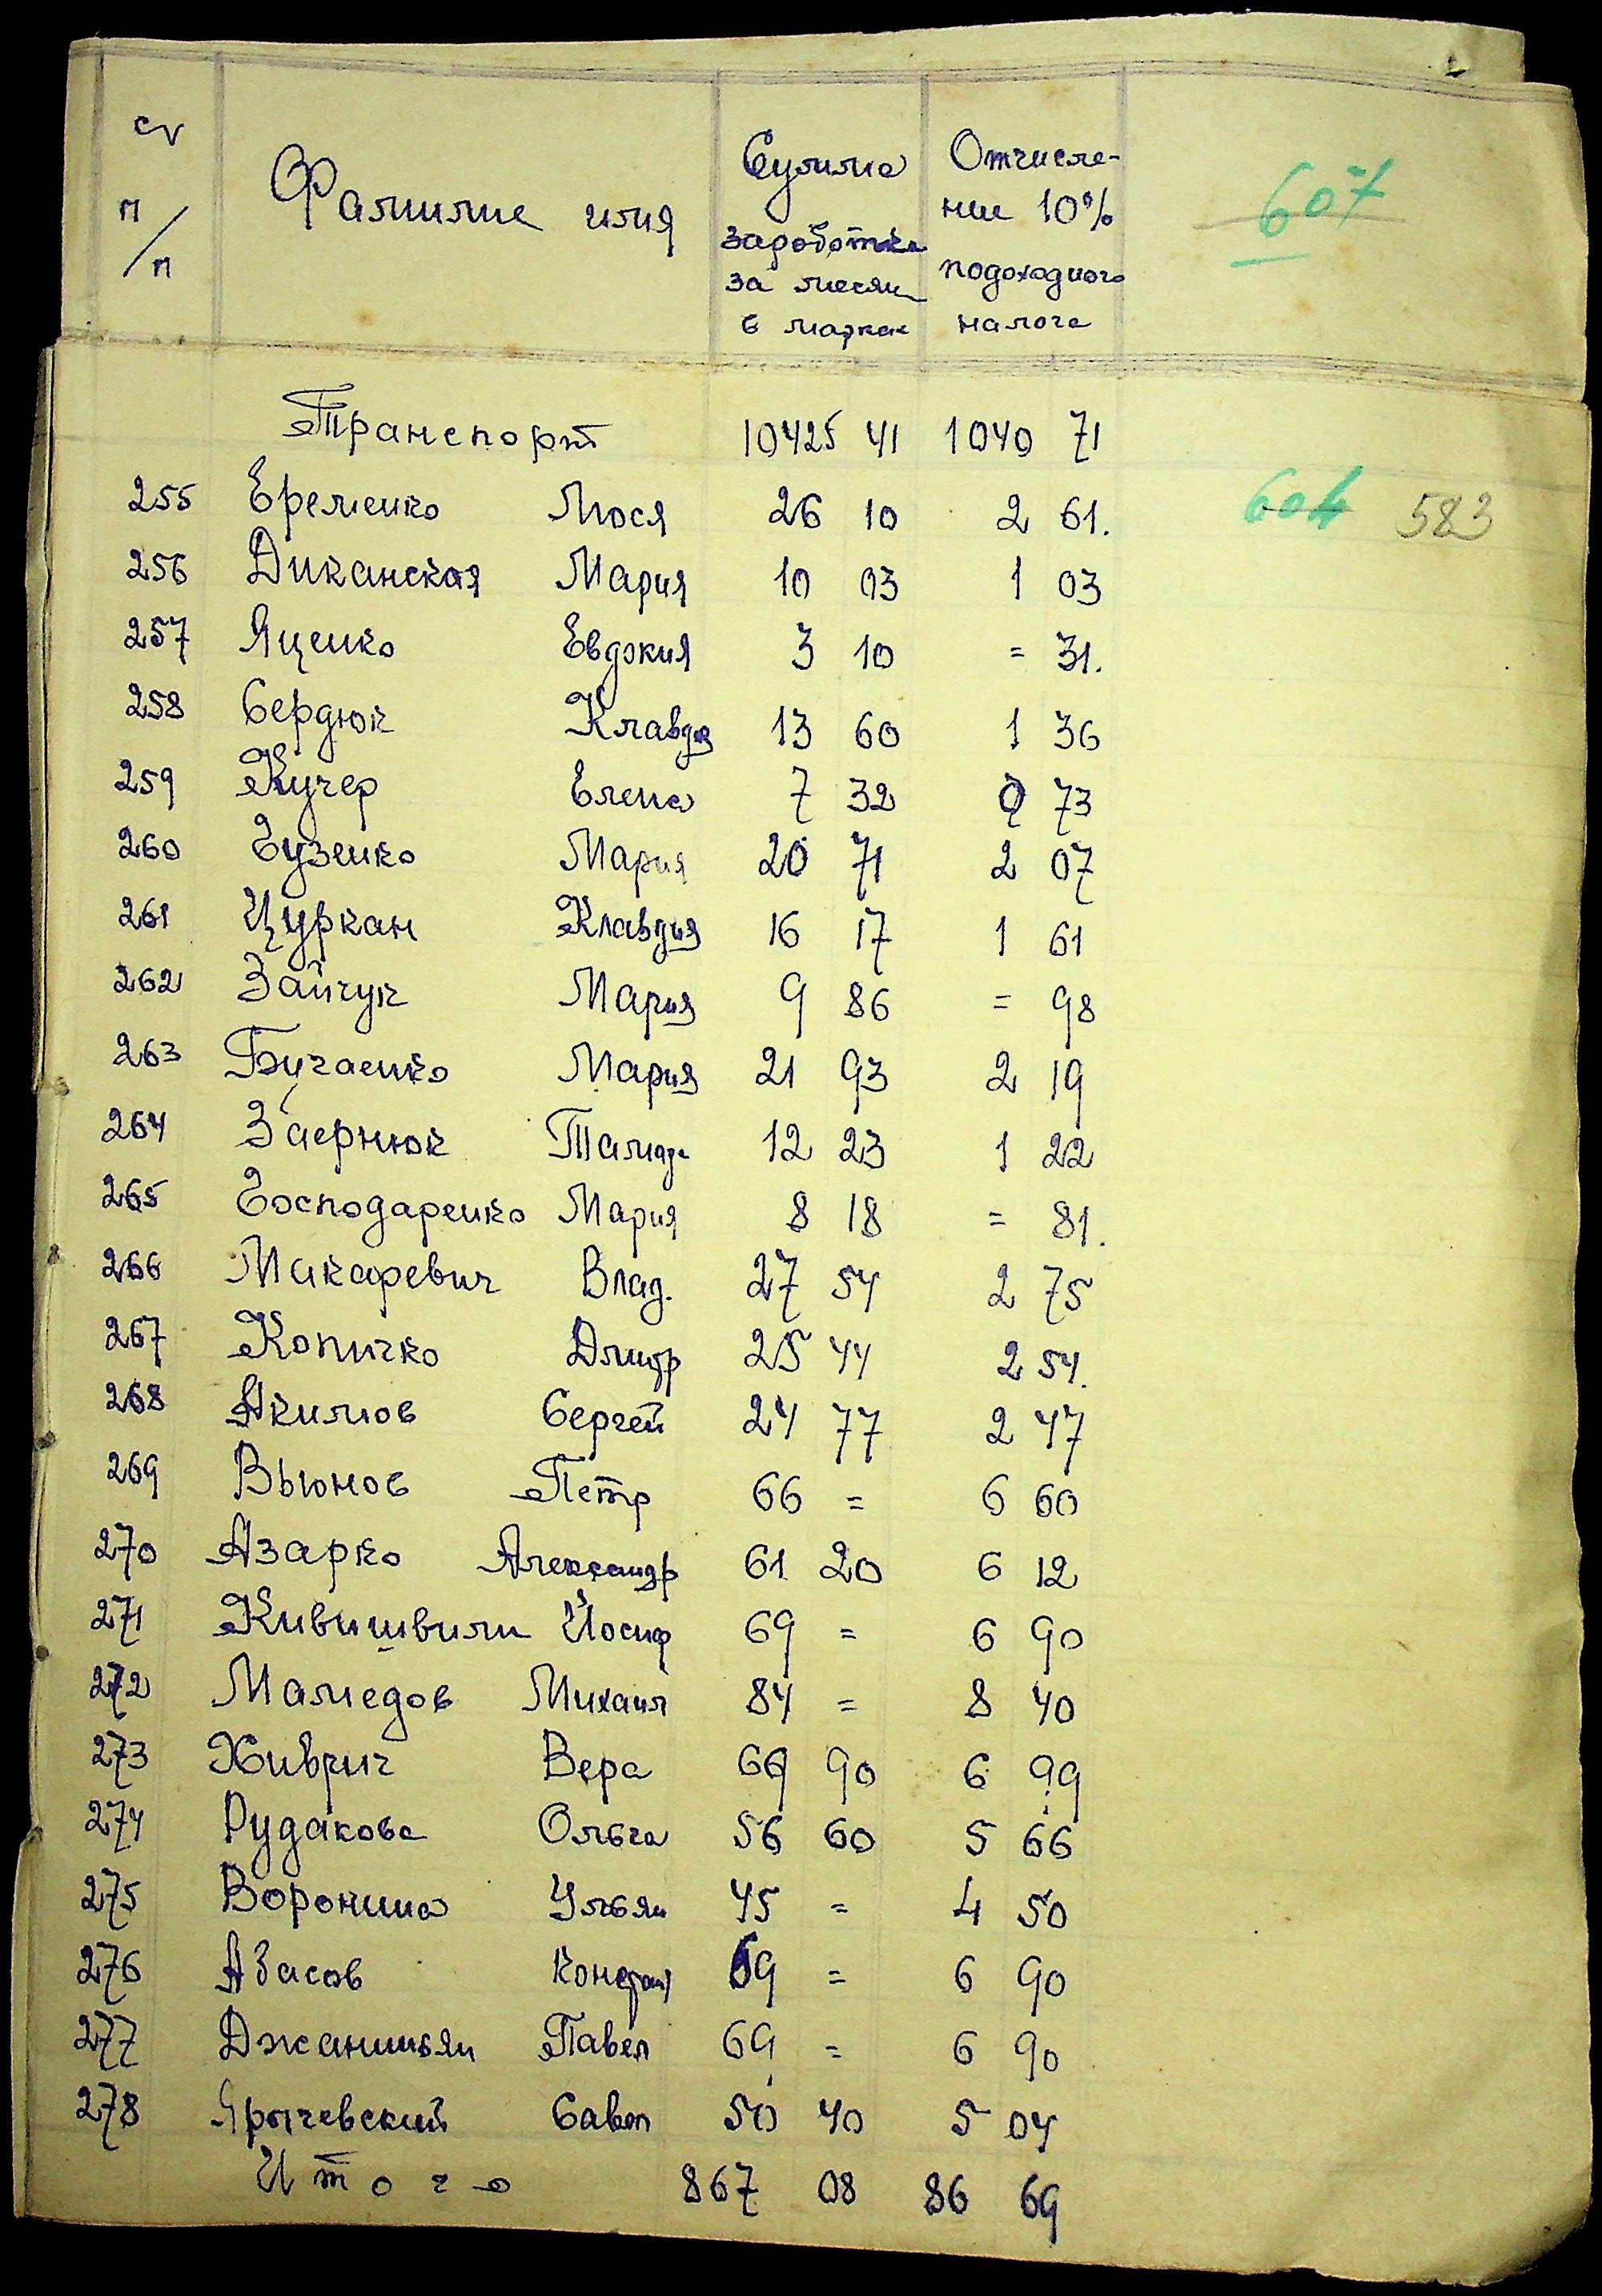 п/п Фамилие имя Сумма заработка за месяц в марках Отчисление 10% подоходного налога 607
Транспорт 10425 41 1040 71
255 Еременко Люся 26 10 2 61. 604 583
256 Диканская Мария 10 03 1 03
257 Яценко Евдокия 3 10 = 31.
258 Сердюк Клавдя 13 60 1 36
259 Кучер Елена 7 32 0 73
260 Гузенко Мария 20 71 2 07
261 Цуркан Клавдия 16 17 1 61
262 Зайчук Мария 9 86 = 98
263 Бугаенко Мария 21 93 2 19
264 Заернюк Тамара 12 23 1 22
265 Господаренко Мария 8 18 = 81.
266 Макаревич Влад. 27 54 2 75
267 Копичко Дмитр 25 44 2 54.
268 Акимов Сергей 24 77 2 47
269 Вьюнов Петр 66 = 6 60
270 Азарко Александр 61 20 6 12
271 Кивишвили Йосиф 69 = 6 90
272 Мамедов Михаил 84 = 8 40
273 Хиврич Вера 69 90 6 99
274 Рудакова Ольга 56 60 5 66
275 Воронина Ульян 45 = 4 50
276 Авасов Констант 69 = 6 90
277 Джанишьян Павел 69 = 6 90
278 Ярычевский Савел 50 40 5 04
Итого 867 08 86 69